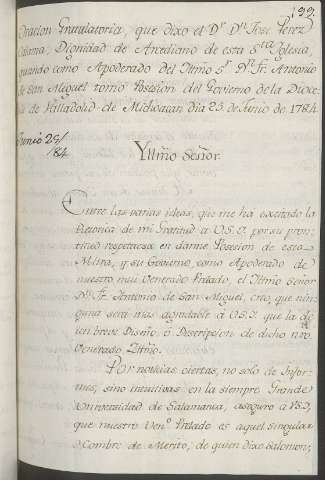 199.
Oracion Gratulatoria, que dixo el Dr Dn Jose Perez
Calama, Dignidad de Arcediano de esta Sta Iglesia,
quando como Apoderado del Illmo Sr Dn Fr. Antonio
de San Miguel tomó Posesion del Govierno de la Dioce
de Valladolid de Michoacan dia 25 de Junio de 1784.
Junio 25/
84
Yllmo Señor.
Entre las varias ideas, que me ha excitado la
Retorica de mi Gratitud a V.S.I. por su pron-
titud respetuosa en darme Posesion de esta
Mitra, y su Govierno, como Apoderado de
nuestro mui Venerado Prelado, el Illmo Señor
Dn Fr. Antonio de San Miguel, creo, que nin-
guna será mas agradable á V.S.I. que la de
un breve Diseño, ó Descripcion de dicho nro
Venerado Illmo.
Por noticias ciertas, no solo de Infor-
mes, sino intuitivas en la siempre Grande
Universidad de Salamanca, aseguro a VSI,
que nuestro Veno Prelado es aquel singular
Hombre de Merito, de quien dixo Salomon,